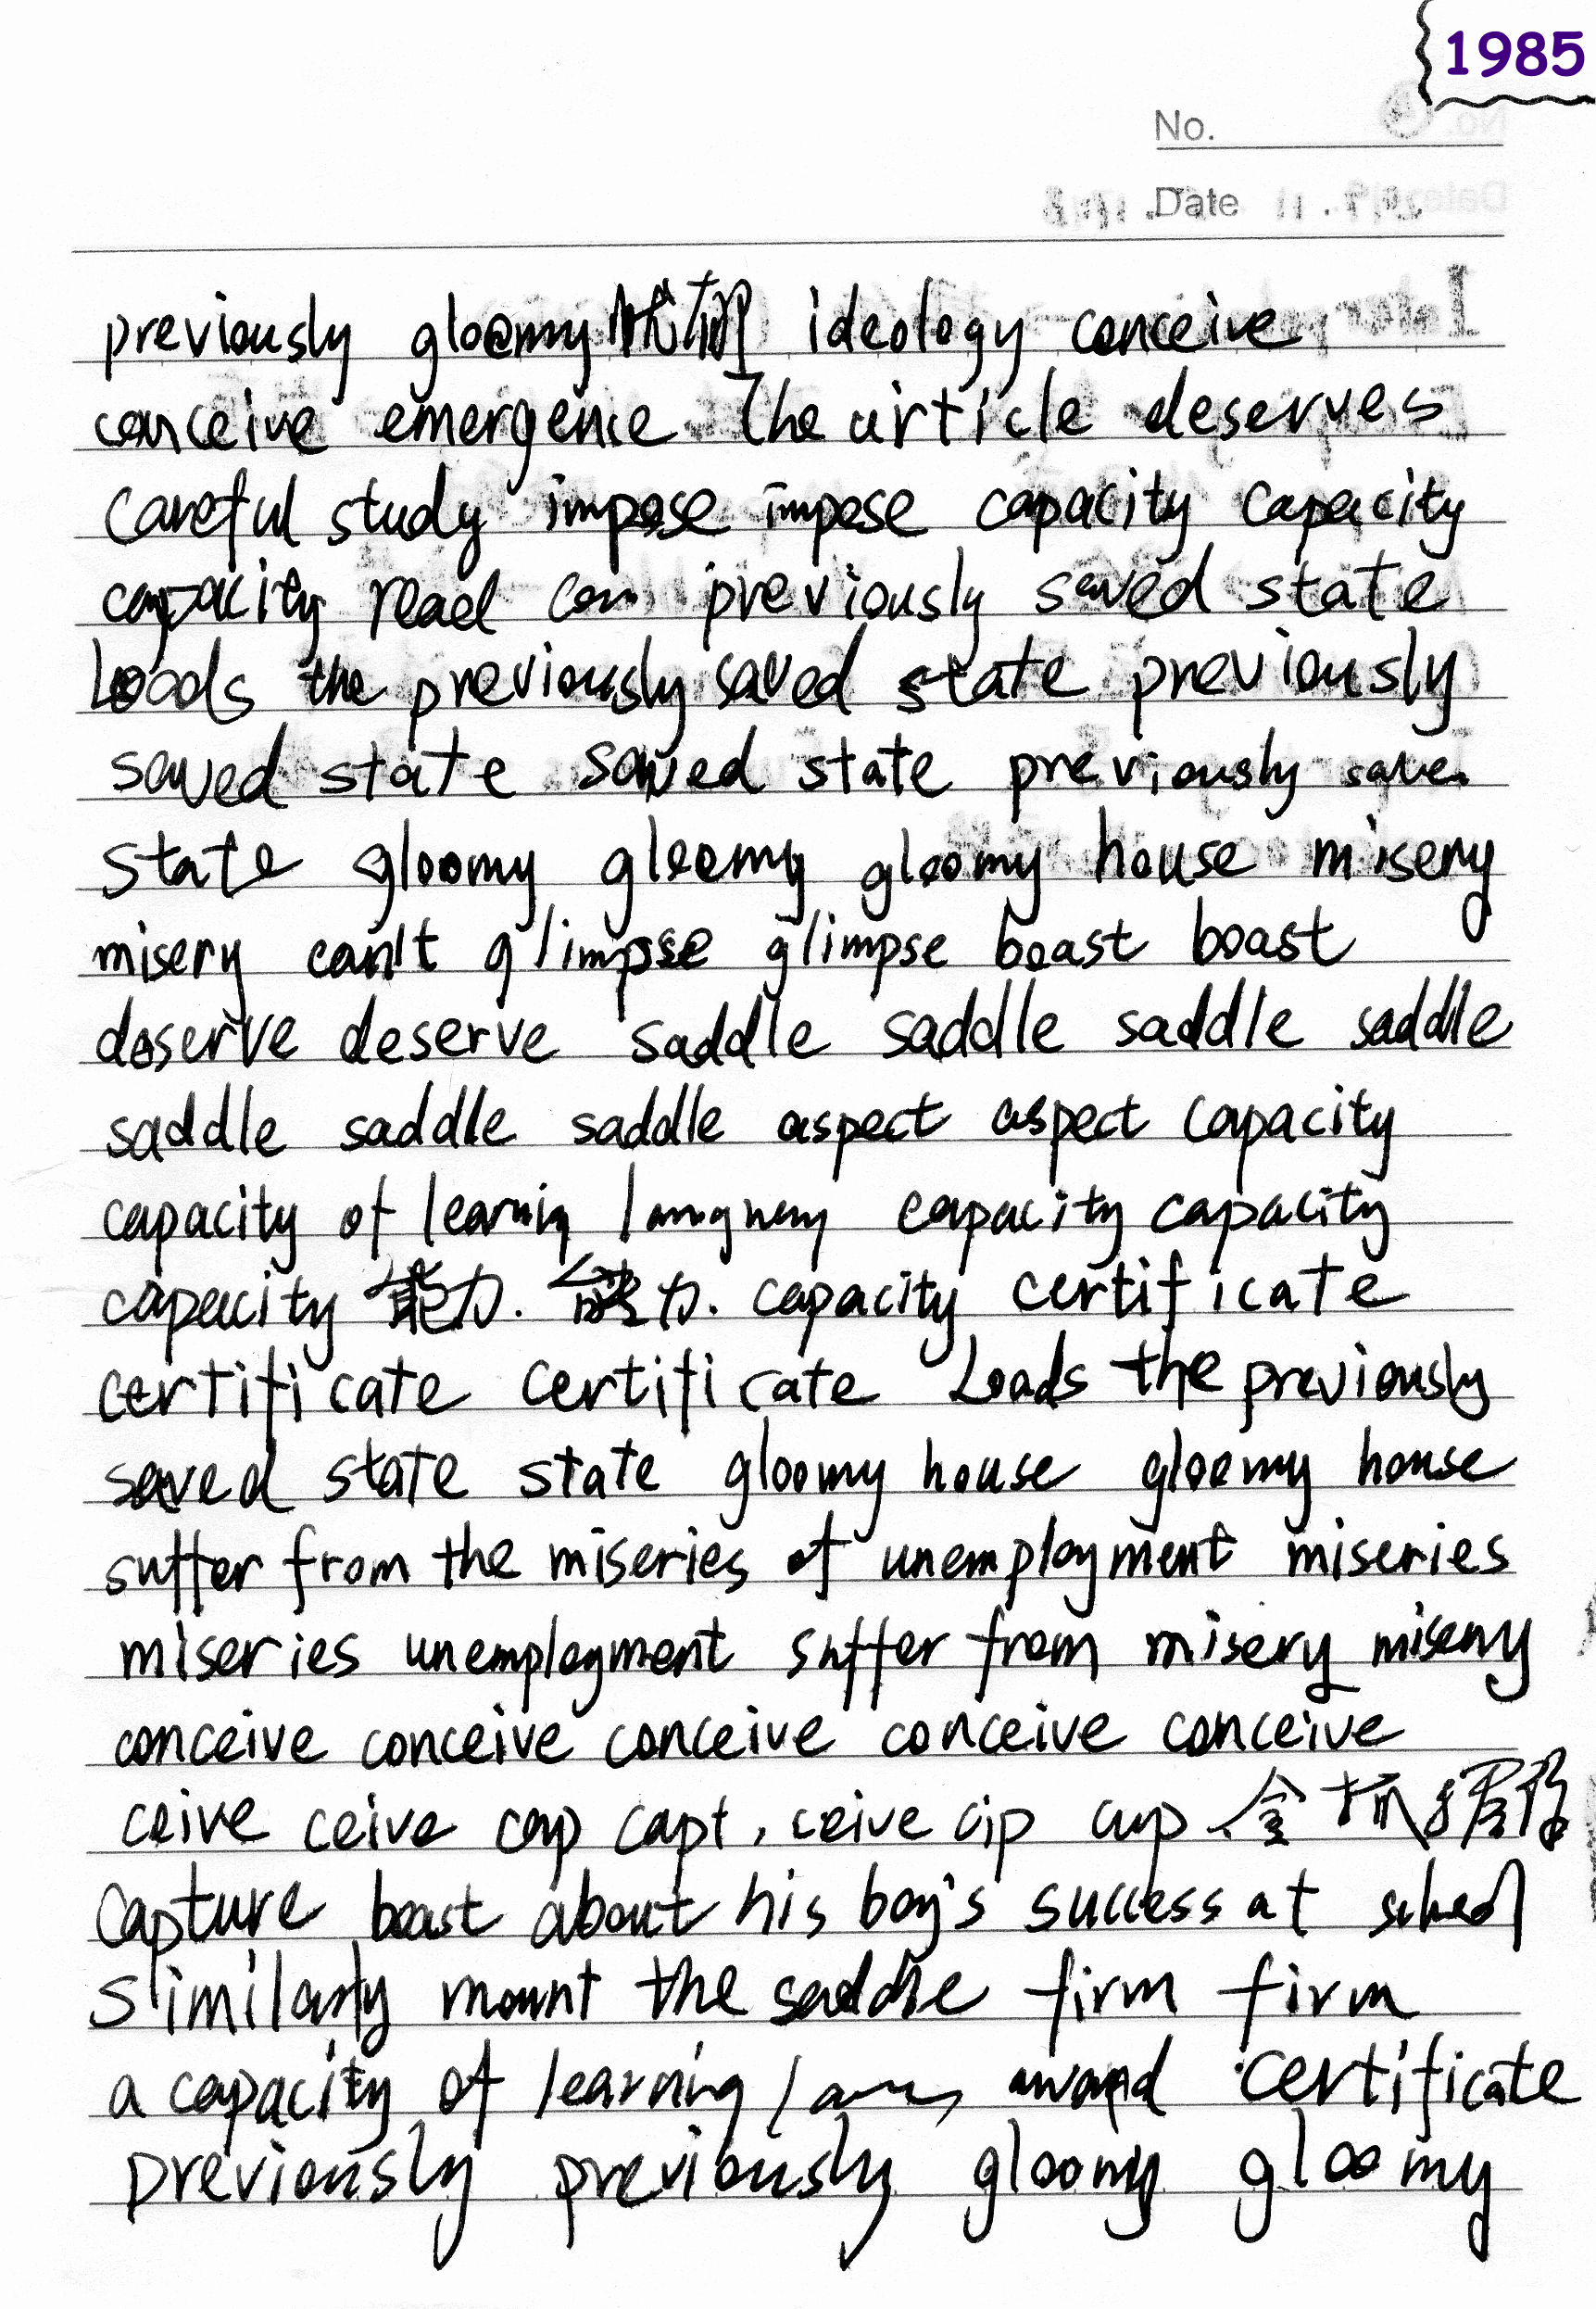 1985
No.
Date
previously gloomy ideology conceive
conceive emergence The article deserves
careful study impose impose capacity capacity
capacity read can previously saved state
Loads the previously saved state previously
saved state saved state previously save
state gloomy gloomy gloomy house misery
misery can't glimpse glimpse boast boast
deserve deserve saddle saddle saddle saddle
saddle saddle saddle aspect aspect capacity
capacity of learning capacity capacity
capacity 能力. 能力. capacity certificate
certificate certificate Loads the previously
saved state state gloomy house gloomy house
suffer from the miseries of unemployment miseries
miseries unemployment suffer from misery misery
conceive conceive conceive conceive conceive
ceive ceive cap capt, ceive cip cup 拿 抓
capture boast about his boy's success at school
similarly mount the saddle firm firm
a capacity of learning award certificate
previously previously gloomy gloomy